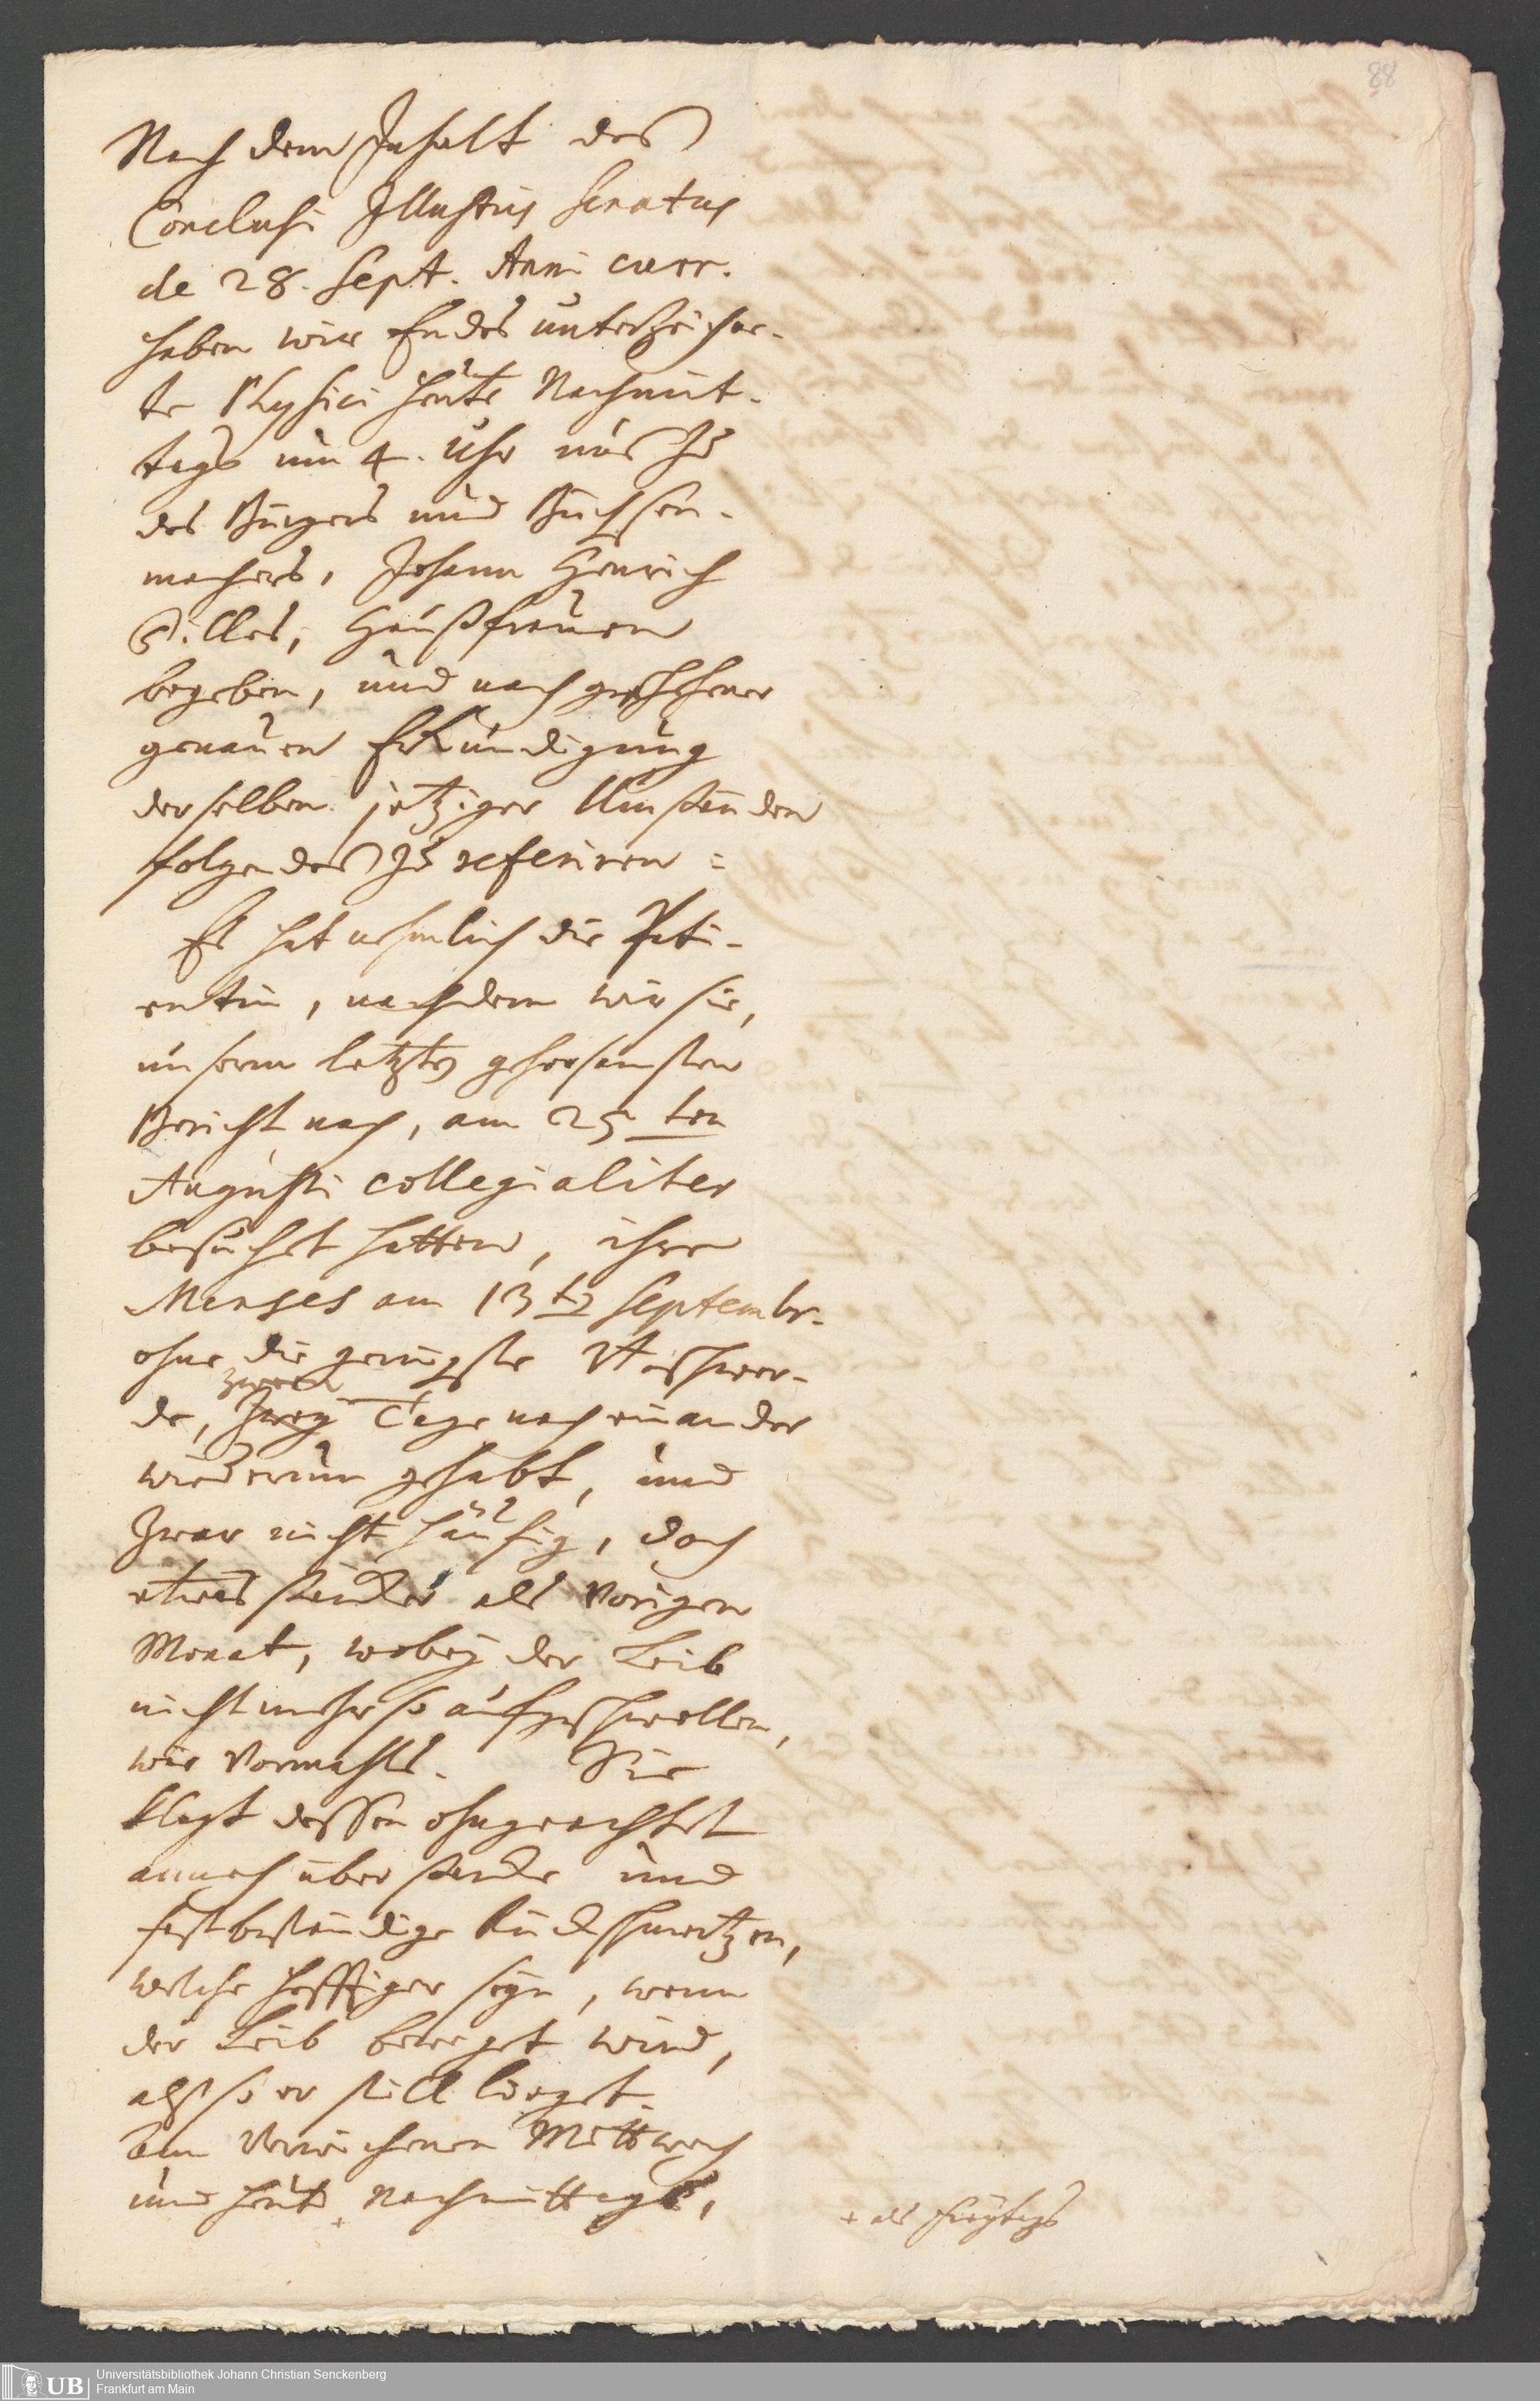 88
Nach dem Inhalt des
Conclusi Illustris Senatus
de 28. Sept. Anni curr.
haben wir Endes unterzeichne-
te Physici heute Nachmit-
tags um 4. Uhr uns zu
des Burgers und Büchsen-
machers, Johann Henrich
Haußfrauen
begeben, und nach geschehener
genauen Erkundigung
derselben jetziger Umständen
folgendes zu referiren:
Es hat nehmlich die Pati-
entin, nachdem wir sie,
unserm letzten gehorsamsten
Bericht nach, am 25 ten
Augusti collegialiter
besuchet hatten, ihre
Menses am 13 ten Septembr.
ohne die geringste Beschwer-
zween
de, zwey Tage nach einander
wiederum gehabt, und
zwar nicht häufig, doch
etwas stärker als vorigen
Monat, wobey der Leib
nicht mehr so aufgeschwollen,
wie vormahls. Sie
klagt dessen ohngeachtet
annoch über starke und
fast beständige Rückschmertzen,
welche hefftiger seyn, wenn
der Leib beweget wird,
alß so er still lieget.
Am verwichenen Mittwoch
und heute + Nachmittags,
+ als Freytags
Universitätsbibliothek Johann Christian Senckenberg
Frankfurt am Main
UB